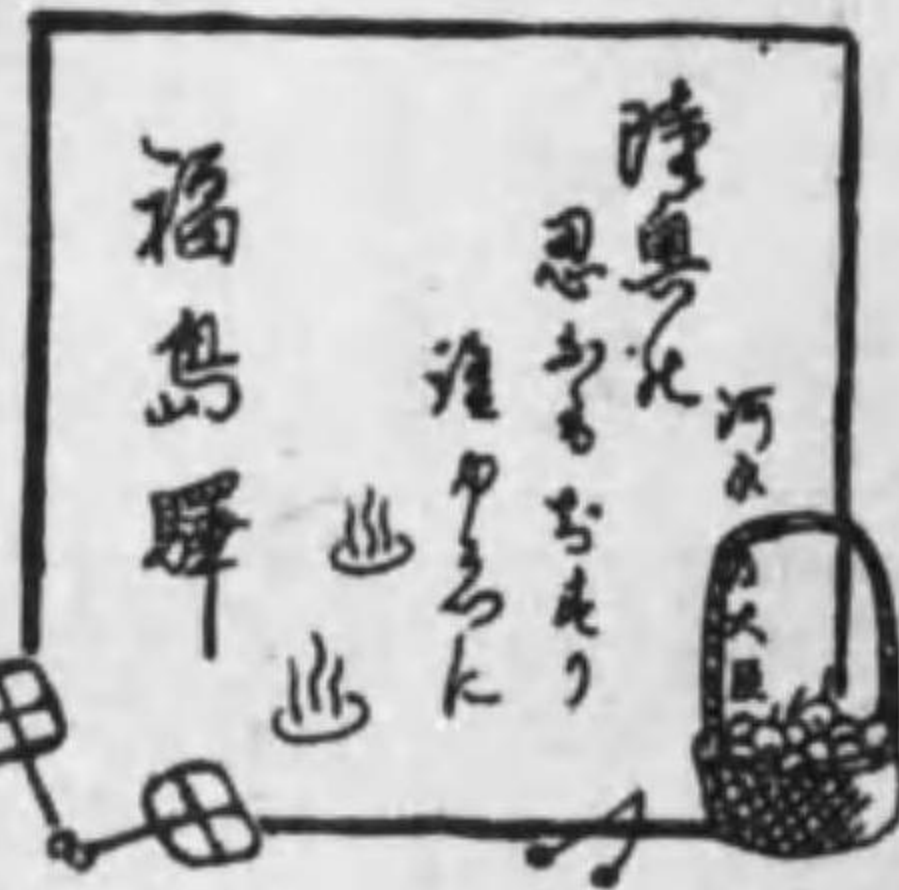 河原左大臣
陸奥の
忍ふもちすり
誰ゆゑに
福島驛